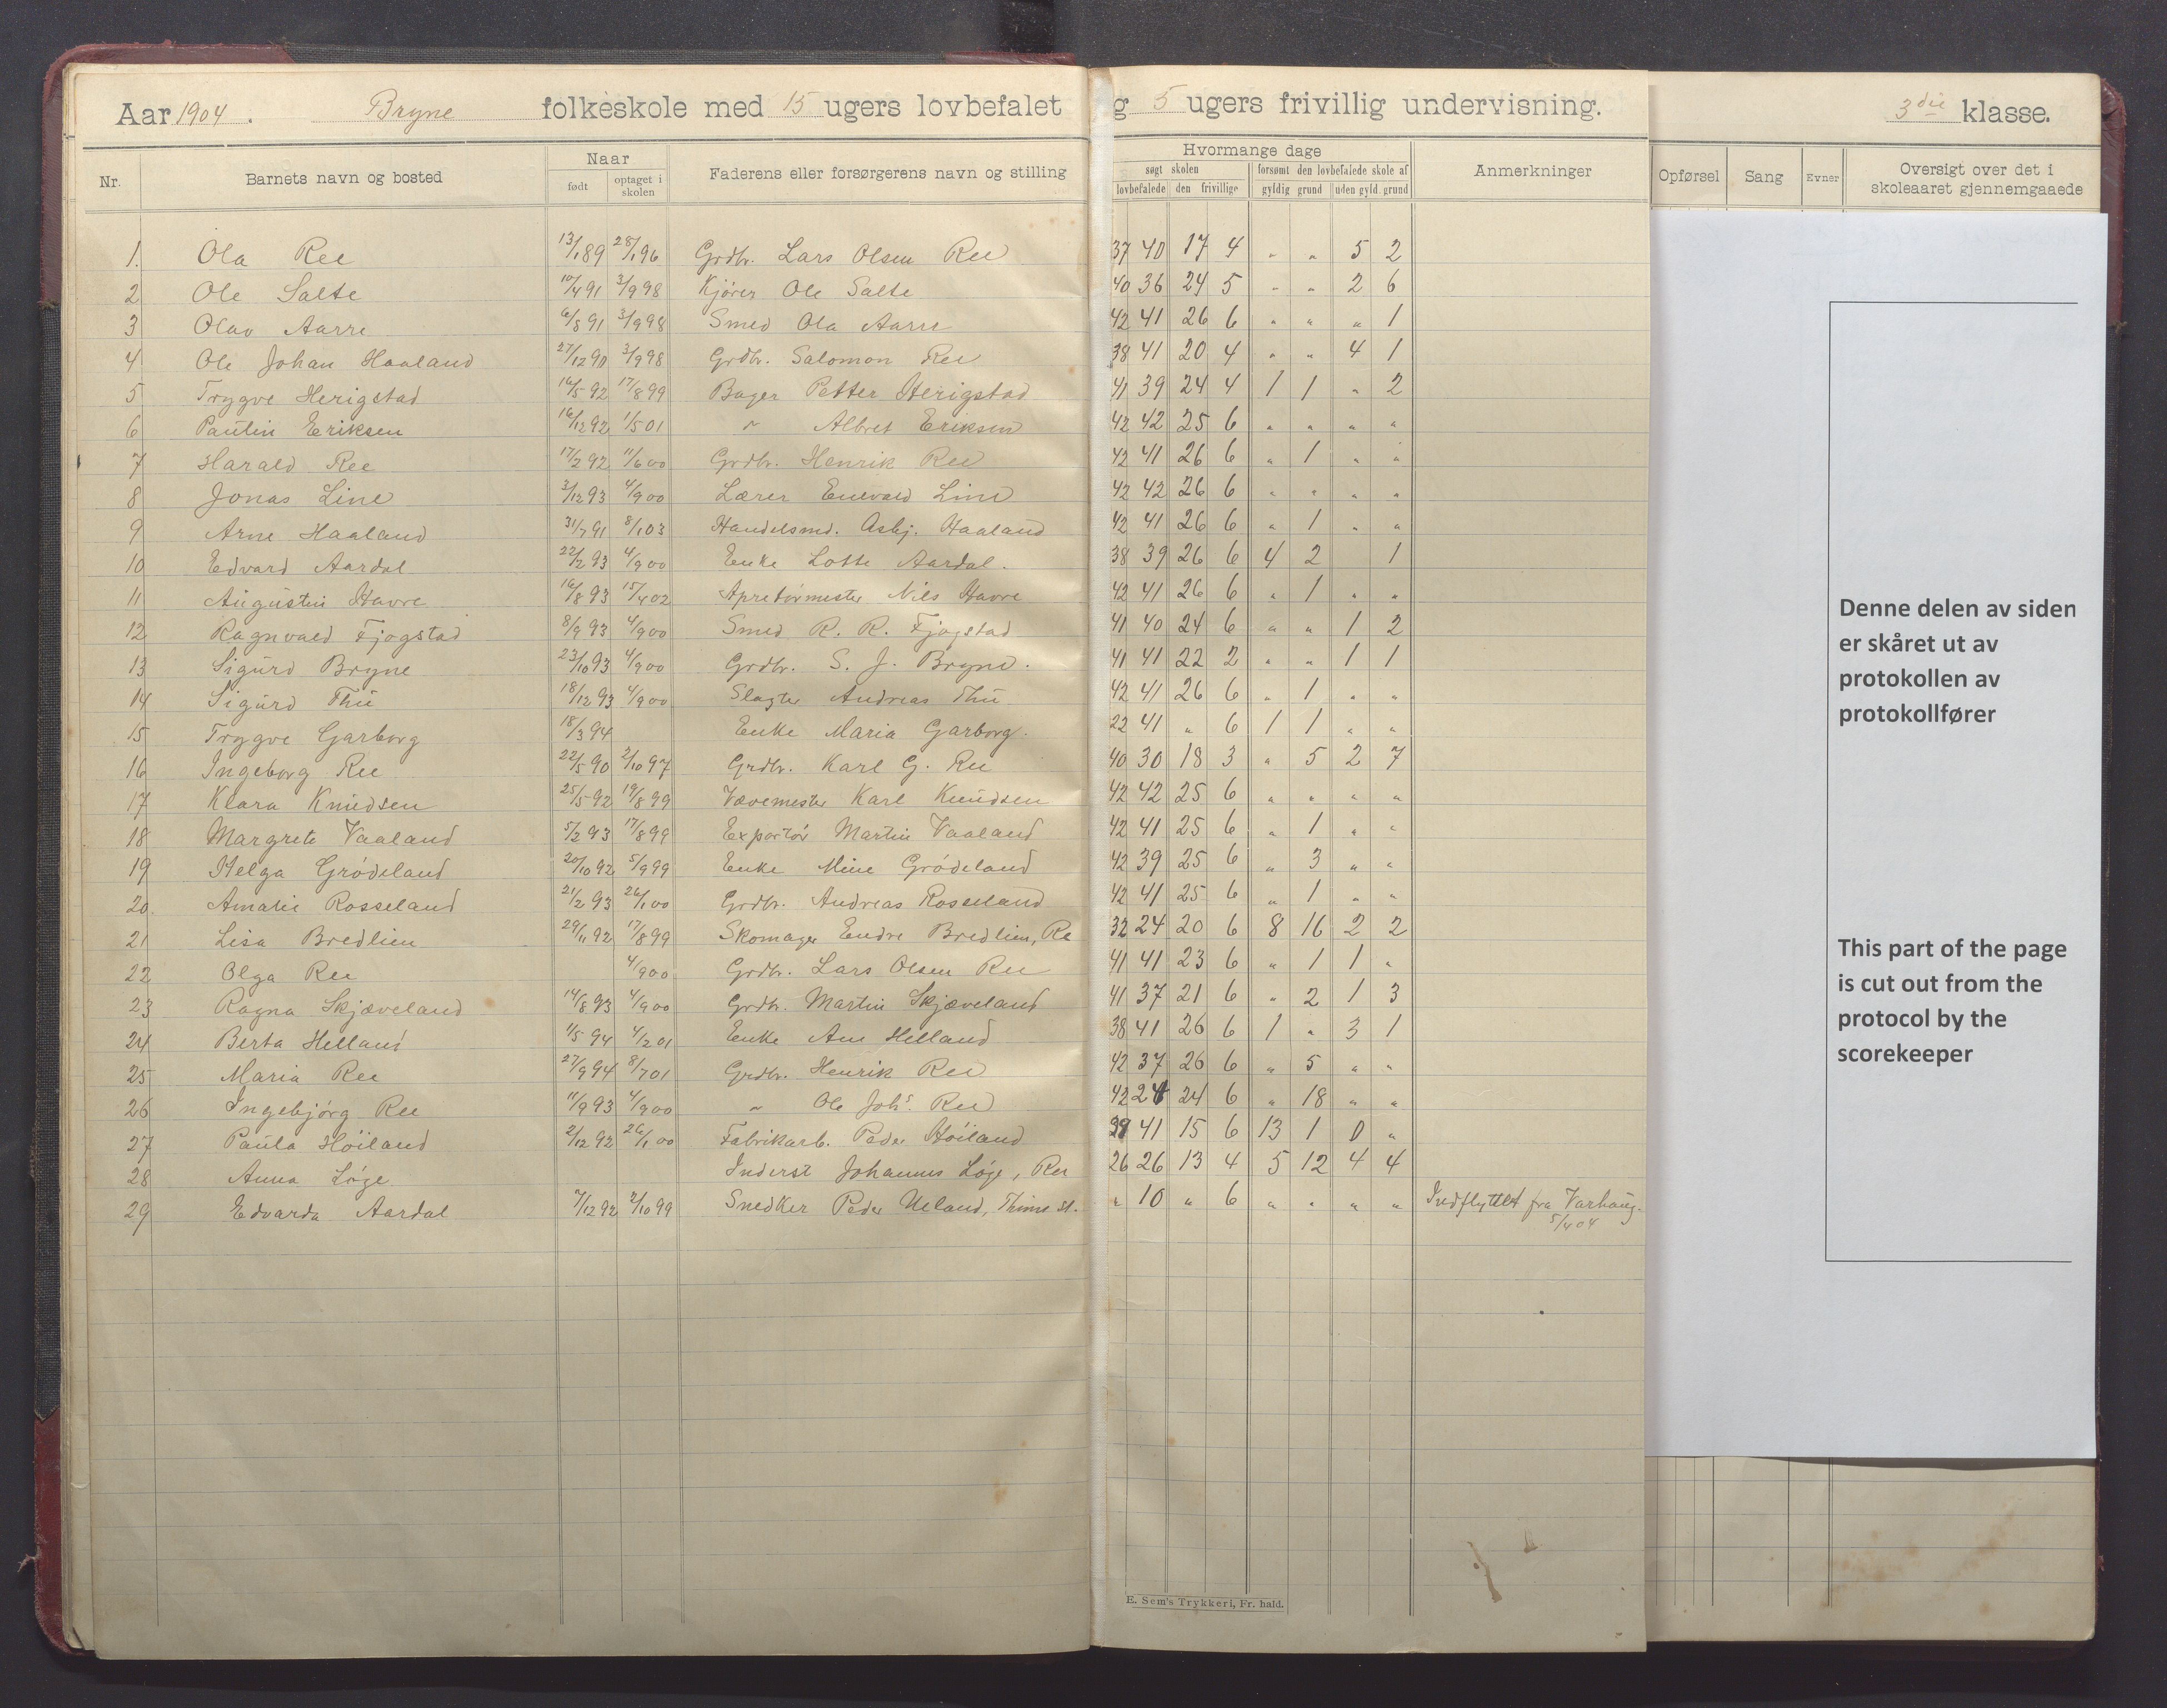 Aar 1904. Bryne folkeskole med 15 ugers lovbefalet g 5 ugers frivillig undervisning. 3die klasse.
Nr. Barnets navn og bosted Naar født optaget i skolen Faderens eller forsørgerens navn og stilling Hvormange dage søgt skolen lovbefalede den frivillige forsømt den lovbefalede skole af gyldig grund uden gyld. grund Anmerkninger Opførsel Sang Evner Oversigt over det i skoleaaret gjennemgaaede
1. Ola Ree 13/1 89 28/1 96 Grdbr. Lars Olsen Ree 37 40 17 4 " " 5 2
2 Ole Salte 10/4 91 3/9 98 Kjører Ole Salte 40 36 24 5 " " 2 6
3 Olav Aarre 6/8 91 3/9 98 Smed Ola Aarre 42 41 26 6 " " " 1
4 Ole Johan Haaland 27/12 90 3/9 98 Grdbr. Salomon Ree 38 41 20 4 " " 4 1
5 Trygve Herigstad 16/5 92 17/8 99 Bager Petter Herigstad 41 39 24 4 1 1 " 2
6 Paulin Eriksen 16/12 92 1/5 01 " Albret Eriksen 42 42 25 6 " " " "
7 Harald Ree 17/2 92 11/6 00 Grdbr. Henrik Ree 42 41 26 6 " 1 " "
8 Jonas Line 3/12 93 4/9 00 Lærer Enevald Line 42 42 26 6 " " " "
9 Arne Haaland 31/7 91 8/1 03 Handelsmd. Asbj. Haaland 42 41 26 6 " 1 " "
10 Edvard Aardal 22/2 93 4/9 00 Enke Lotte Aardal. 38 39 26 6 4 2 1
11 Augustin Havre 16/8 93 15/4 02 Apretørmester Nils Havre 42 41 26 6 " 1 " "
12 Ragnvald Fjogstad 8/9 93 4/9 00 Smed R. R. Fjogstad 41 40 24 6 " " 1 2
13 Sigurd Bryne 23/10 93 4/9 00 Grdbr. S. J. Bryne. 41 41 22 2 " " 1 1
14 Sigurd Thu 18/12 93 4/9 00 Slagter Andreas Thu 42 41 26 6 " 1 " "
15 Trygve Garborg 18/3 94 Enke Maria Garborg. 22 41 " 6 1 1 " "
16 Ingeborg Ree 22/5 90 2/10 97 Grdbr. Karl G. Ree 40 30 18 3 " 5 2 7
17 Klara Knudsen 25/5 92 19/8 99 Vævemester Karl Knudsen 42 42 25 6 " " " "
18 Margrete Vaaland 5/2 93 17/8 99 Exportør Martin Vaaland 42 41 25 6 " 1 " "
19 Helga Grødeland 20/10 92 5/9 99 Enke Mine Grødeland 42 39 25 6 " 3 " "
20. Amalie Rosseland 21/2 93 26/1 00 Grdbr. Andreas Rosseland 42 41 25 6 " 1 " "
21 Lisa Bredlien 29/11 92 17/8 99 Skomager Endre Bredlien, Re 32 24 20 6 8 16 2 2
22 Olga Ree 4/9 00 Grdbr. Lars Olsen Ree 41 41 23 6 " 1 1 "
23 Ragna Skjæveland 14/8 93 4/9 00 Grdbr. Martin Skjæveland 41 37 21 6 " 2 1 3
24 Berta Helland 1/5 94 4/2 01 Enke Ane Helland 38 41 26 6 1 " 3 1
25 Maria Ree 27/9 94 8/7 01 Grdbr. Henrik Ree 42 37 26 6 " 5 " "
26 Ingebjørg Ree 11/9 93 4/9 00 " Ole Johs. Ree 42 24 24 6 " 18 " "
27 Paula Høiland 2/12 92 26/1 00 Fabrikarb. Peder Høiland 29 41 15 6 13 1 0 "
28 Anna Løge Inderst Johannes Løge, Ree 26 26 13 4 5 12 4 4
29 Edvarda Aardal 7/12 92 2/10 99 Snedker Peder Ueland, Thime st. " 10 " 6 " " " " Indflyttet fra Varhaug.
5/4 04
E. Sem's Trykkeri, Fr. hald.
Denne delen av siden
er skåret ut av
protokollen av
protokollfører
This part of the page
is cut out from the
protocol by the
scorekeeper